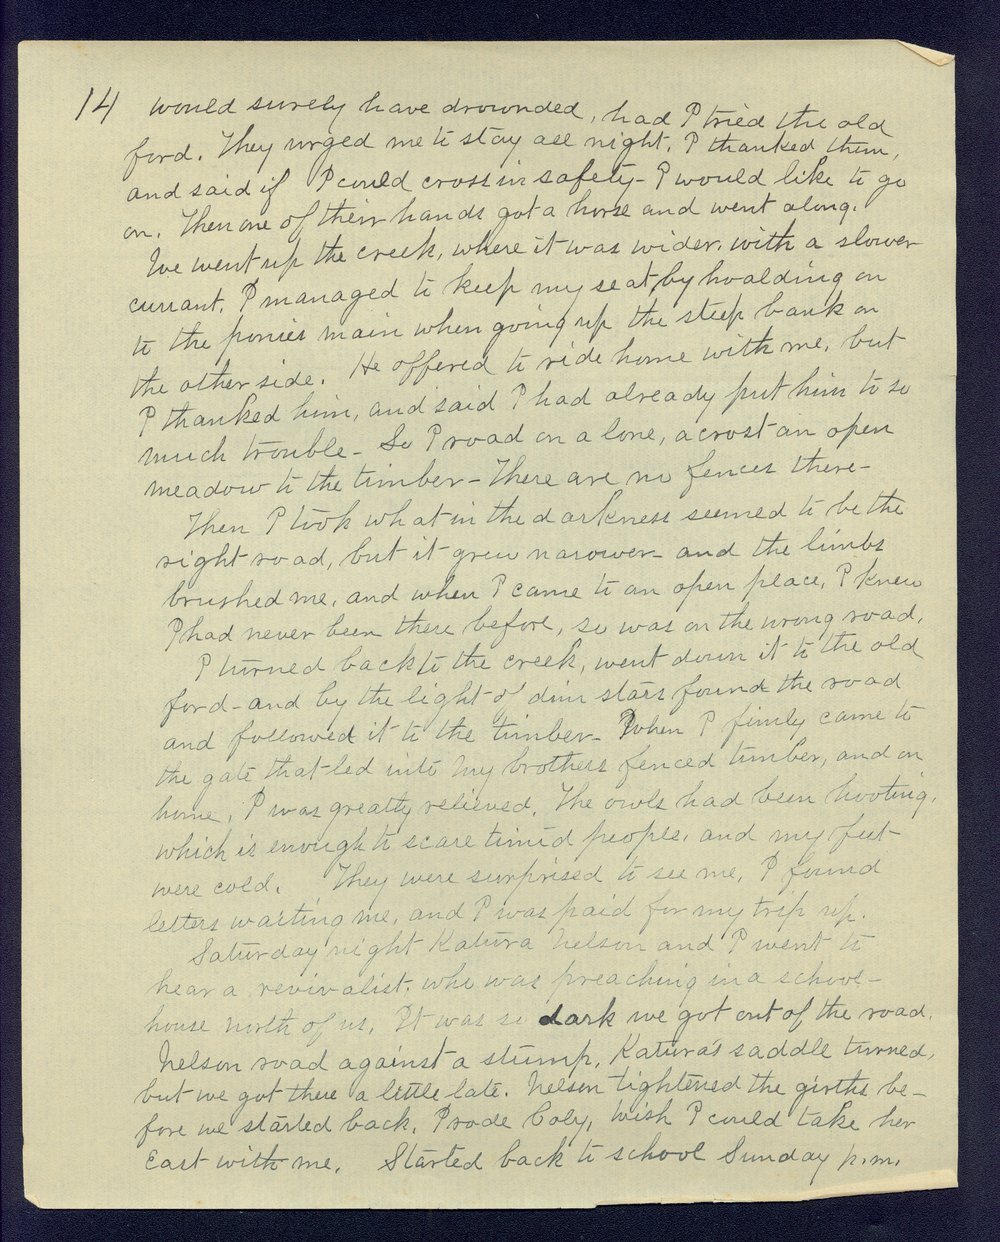 14 would surely have drownded, had I tried the old
ford. They urged me to stay all night. I thanked them,
and said if I could cross in safety - I would like to go
on. Then one of their hands got a horse and went along.
We went up the creek, where it was wider, with a slower
currant. I managed to keep my seat, by hoalding on
to the ponies main when going up the steep bank on
the other side. He offered to ride home with me, but
I thanked him, and said I had already put him to so
much trouble - So I road on a lone, acrost an open
meadow to the timber - There are no fences there -
Then I took what in the darkness seemed to be the
right road, but it grew narower - and the limbs
brushed me, and when I came to an open place, I knew
I had never been there before, so was on the wrong road.
I turned back to the creek, went down it to the old
ford - and by the light of dim stars found the road
and followed it to the timber - When I finly came to
the gate that led into my brothers fenced timber, and on
home, I was greatly relieved. The owls had been hooting,
which is enough to scare timid peoples, and my feet
were cold. They were surprised to see me. I found
letters waiting me, and I was paid for my trip up.
Saturday night Katura Nelson and I went to
hear a revivalist, who was preaching in a school-
house north of us. It was so dark we got out of the road.
Nelson road against a stump, Katura's saddle turned,
but we got there a little late. Nelson tightened the girths be-
fore we started back. I rode Coly, wish I could take her
East with me. Started back to school Sunday p.m.